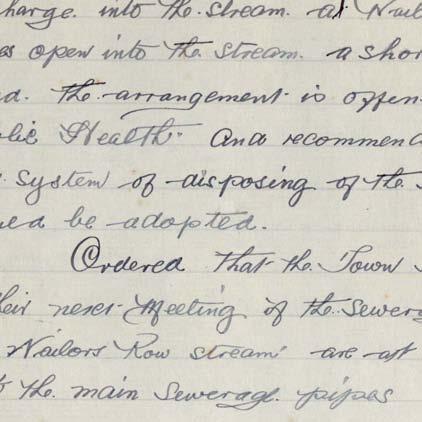 charge. into the stream. at Nail
es open into the stream. a shor
d. the arrangement is offen
blic Health. And recommen
System of disposing of the
ed be adopted.
Ordered that the Town
their next Meeting of the Sewer
Nailors Row stream are at
the main Sewerage pipes